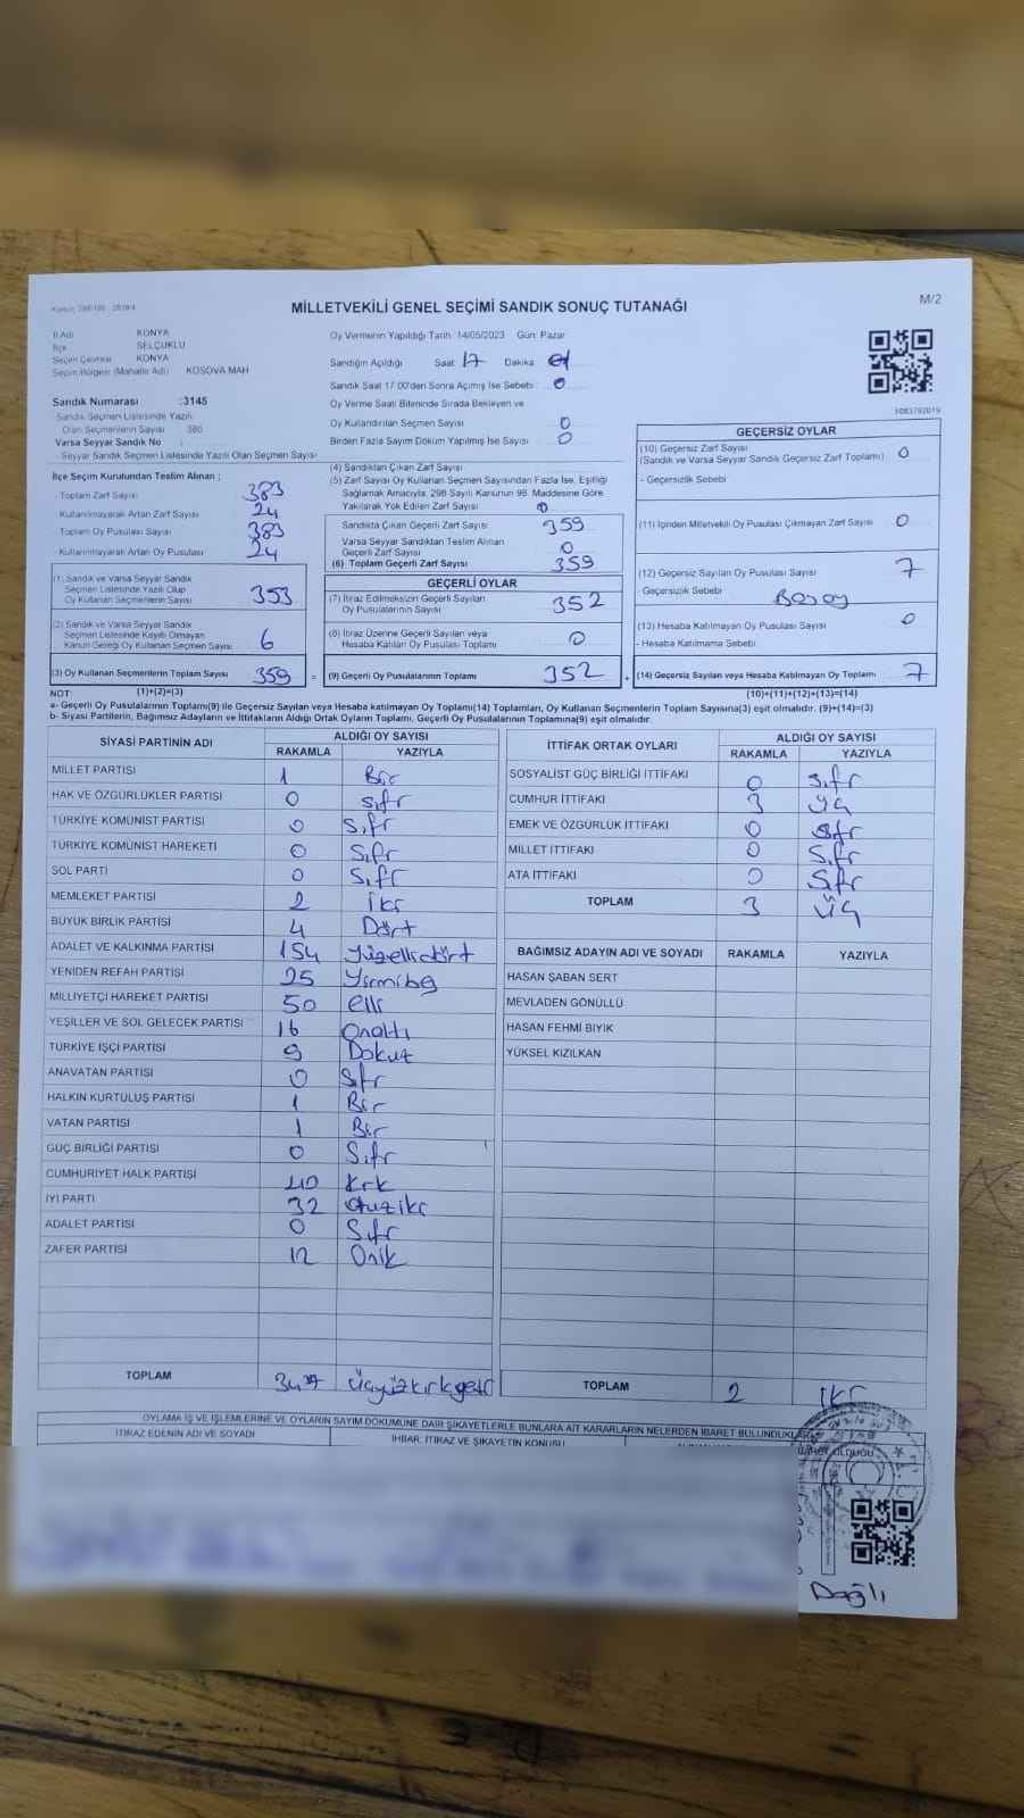 MİLLETVEKİLİ GENEL SEÇİMİ SANDIK SONUÇ TUTANAĞI
M/2
İl Adı KONYA
İlçe SELÇUKLU
Seçim Çevresi KONYA
Seçim Bölgesi (Mahalle Adı) KOSOVA MAH
Sandık Numarası :3145
Sandık Seçmen Listesinde Yazılı
Olan Seçmenlerin Sayısı 380
Varsa Seyyar Sandık No :
Seyyar Sandık Seçmen Listesinde Yazılı Olan Seçmen Sayısı
Oy Vermenin Yapıldığı Tarih 14/05/2023 Gün: Pazar
Sandığın Açıldığı Saat 17 Dakika
Sandık Saat 17.00'den Sonra Açılmış İse Sebebi : 0
Oy Verme Saati Bitiminde Sırada Bekleyen ve
Oy Kullandırılan Seçmen Sayısı 0
Birden Fazla Sayım Döküm Yapılmış İse Sayısı 0
İlçe Seçim Kurulundan Teslim Alınan ;
- Toplam Zarf Sayısı 383
- Kullanılmayarak Artan Zarf Sayısı 24
Toplam Oy Pusulası Sayısı 383
- Kullanılmayarak Artan Oy Pusulası 24
(1) Sandık ve Varsa Seyyar Sandık
Seçmen Listesinde Yazılı Olup
Oy Kullanan Seçmenlerin Sayısı 353
(2) Sandık ve Varsa Seyyar Sandık
Seçmen Listesinde Kayıtlı Olmayan
Kanun Gereği Oy Kullanan Seçmen Sayısı 6
(3) Oy Kullanan Seçmenlerin Toplam Sayısı 359
(4) Sandıktan Çıkan Zarf Sayısı
(5) Zarf Sayısı Oy Kullanan Seçmen Sayısından Fazla İse, Eşitliği
Sağlamak Amacıyla, 298 Sayılı Kanunun 98. Maddesine Göre
Yakılarak Yok Edilen Zarf Sayısı 0
Sandıkta Çıkan Geçerli Zarf Sayısı 359
Varsa Seyyar Sandıktan Teslim Alınan
Geçerli Zarf Sayısı 0
(6) Toplam Geçerli Zarf Sayısı 359
GEÇERLİ OYLAR
(7) İtiraz Edilmeksizin Geçerli Sayılan
Oy Pusulalarının Sayısı 352
(8) İtiraz Üzerine Geçerli Sayılan veya
Hesaba Katılan Oy Pusulası Toplamı 0
= (9) Geçerli Oy Pusulalarının Toplamı 352
GEÇERSİZ OYLAR
(10) Geçersiz Zarf Sayısı
(Sandık ve Varsa Seyyar Sandık Geçersiz Zarf Toplamı) 0
- Geçersizlik Sebebi
(11) İçinden Milletvekili Oy Pusulası Çıkmayan Zarf Sayısı 0
(12) Geçersiz Sayılan Oy Pusulası Sayısı 7
Geçersizlik Sebebi
(13) Hesaba Katılmayan Oy Pusulası Sayısı 0
- Hesaba Katılmama Sebebi
+ (14) Geçersiz Sayılan veya Hesaba Katılmayan Oy Toplamı 7
NOT: (1)+(2)=(3) (10)+(11)+(12)+(13)=(14)
a- Geçerli Oy Pusulalarının Toplamı(9) ile Geçersiz Sayılan veya Hesaba katılmayan Oy Toplamı(14) Toplamları, Oy Kullanan Seçmenlerin Toplam Sayısına(3) eşit olmalıdır. (9)+(14)=(3)
b- Siyasi Partilerin, Bağımsız Adayların ve İttifakların Aldığı Ortak Oyların Toplamı, Geçerli Oy Pusulalarının Toplamına(9) eşit olmalıdır.
SİYASİ PARTİNİN ADI ALDIĞI OY SAYISI
RAKAMLA YAZIYLA
MİLLET PARTİSİ 1 Bir
HAK VE ÖZGÜRLÜKLER PARTİSİ 0 Sıfr
TÜRKİYE KOMÜNİST PARTİSİ 0 Sıfr
TÜRKİYE KOMÜNİST HAREKETİ 0 Sıfr
SOL PARTİ 0 Sıfr
MEMLEKET PARTİSİ 2 iki
BÜYÜK BİRLİK PARTİSİ 4 Dört
ADALET VE KALKINMA PARTİSİ 154 Yüzellidört
YENİDEN REFAH PARTİSİ 25 Yirmibeş
MİLLİYETÇİ HAREKET PARTİSİ 50 elli
YEŞİLLER VE SOL GELECEK PARTİSİ 16 Onaltı
TÜRKİYE İŞÇİ PARTİSİ 9 Dokuz
ANAVATAN PARTİSİ 0 Sıfr
HALKIN KURTULUŞ PARTİSİ 1 Bir
VATAN PARTİSİ 1 Bir
GÜÇ BİRLİĞİ PARTİSİ 0 Sıfr
CUMHURİYET HALK PARTİSİ 40 Kırk
İYİ PARTİ 32 Otuziki
ADALET PARTİSİ 0 Sıfr
ZAFER PARTİSİ 12 Onik
TOPLAM 347 Üçyüzkırkyedi
İTTİFAK ORTAK OYLARI ALDIĞI OY SAYISI
RAKAMLA YAZIYLA
SOSYALİST GÜÇ BİRLİĞİ İTTİFAKI 0 Sıfr
CUMHUR İTTİFAKI 3 üç
EMEK VE ÖZGÜRLÜK İTTİFAKI 0 Sıfr
MİLLET İTTİFAKI 0 Sıfr
ATA İTTİFAKI 0 Sıfr
TOPLAM 3 üç
BAĞIMSIZ ADAYIN ADI VE SOYADI RAKAMLA YAZIYLA
HASAN ŞABAN SERT
MEVLADEN GÖNÜLLÜ
HASAN FEHMİ BIYIK
YÜKSEL KIZILKAN
TOPLAM 2 iki
OYLAMA İŞ VE İŞLEMLERİNE VE OYLARIN SAYIM DÖKÜMÜNE DAİR ŞİKAYETLERLE BUNLARA AİT KARARLARIN NELERDEN İBARET BULUNDUKLARI
İTİRAZ EDENİN ADI VE SOYADI İHBAR, İTİRAZ VE ŞİKAYETİN KONUSU
Dağlı